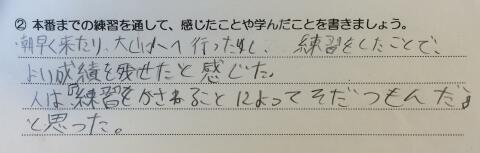 ② 本番までの練習を通して、感じたことや学んだことを書きましょう。
・朝早く来たり、大山へ行ったりし、練習をしたことで、
よい成績を残せたと感じた。
人は『練習をかさねることによってそだつもんだ』
と思った。